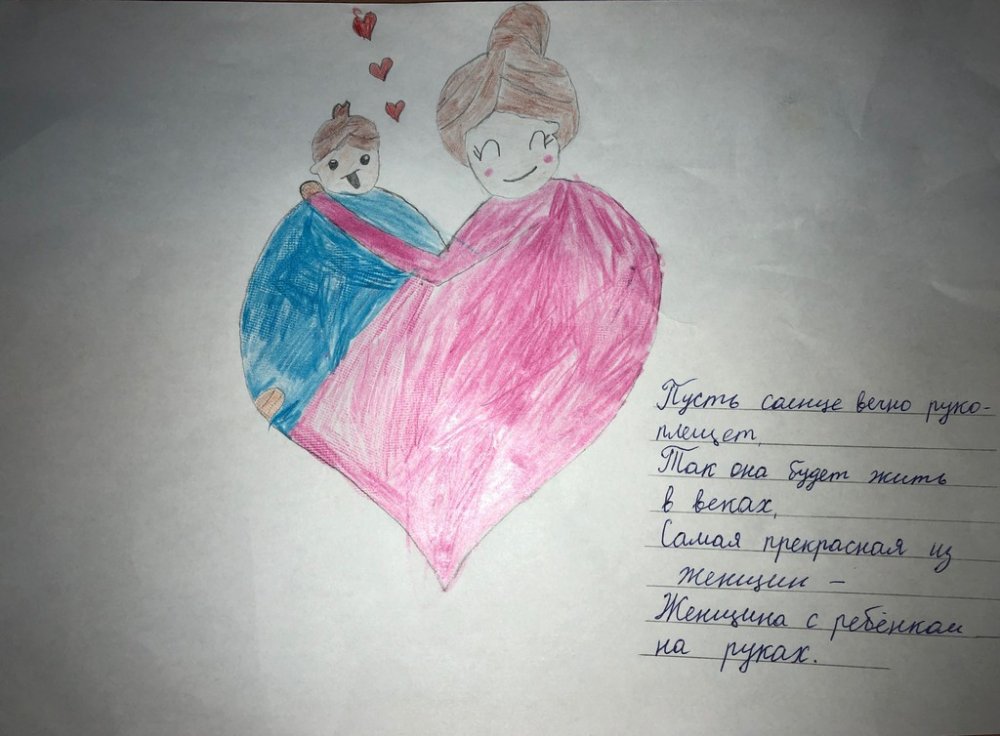 Пусть солнце вечно руко-
плещет,
Так она будет жить
в веках,
Самая прекрасная из
женщин –
Женщина с ребёнком
на руках.